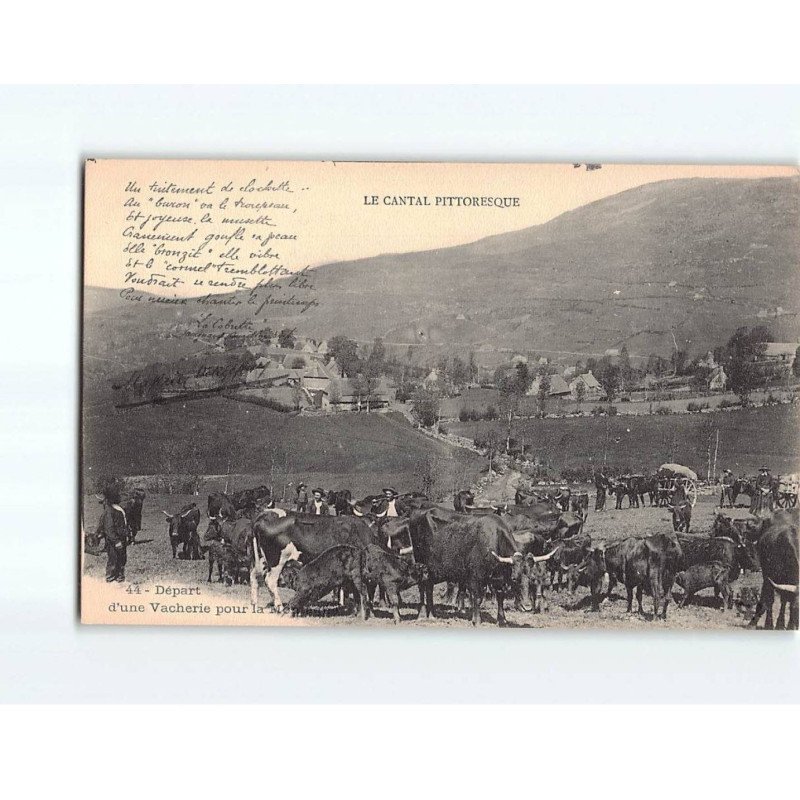 Un tintement de clochette ..
Au "buron" va le troupeau,
Et joyeuse la musette
Crânement gonfle sa peau
Elle "bronzit" elle vibre
Et le "cornet" tremblottant
Voudrait se rendre plus libre
Pour mieux chanter le printemps
La Cabrette
LE CANTAL PITTORESQUE
44 - Départ
d'une Vacherie pour la